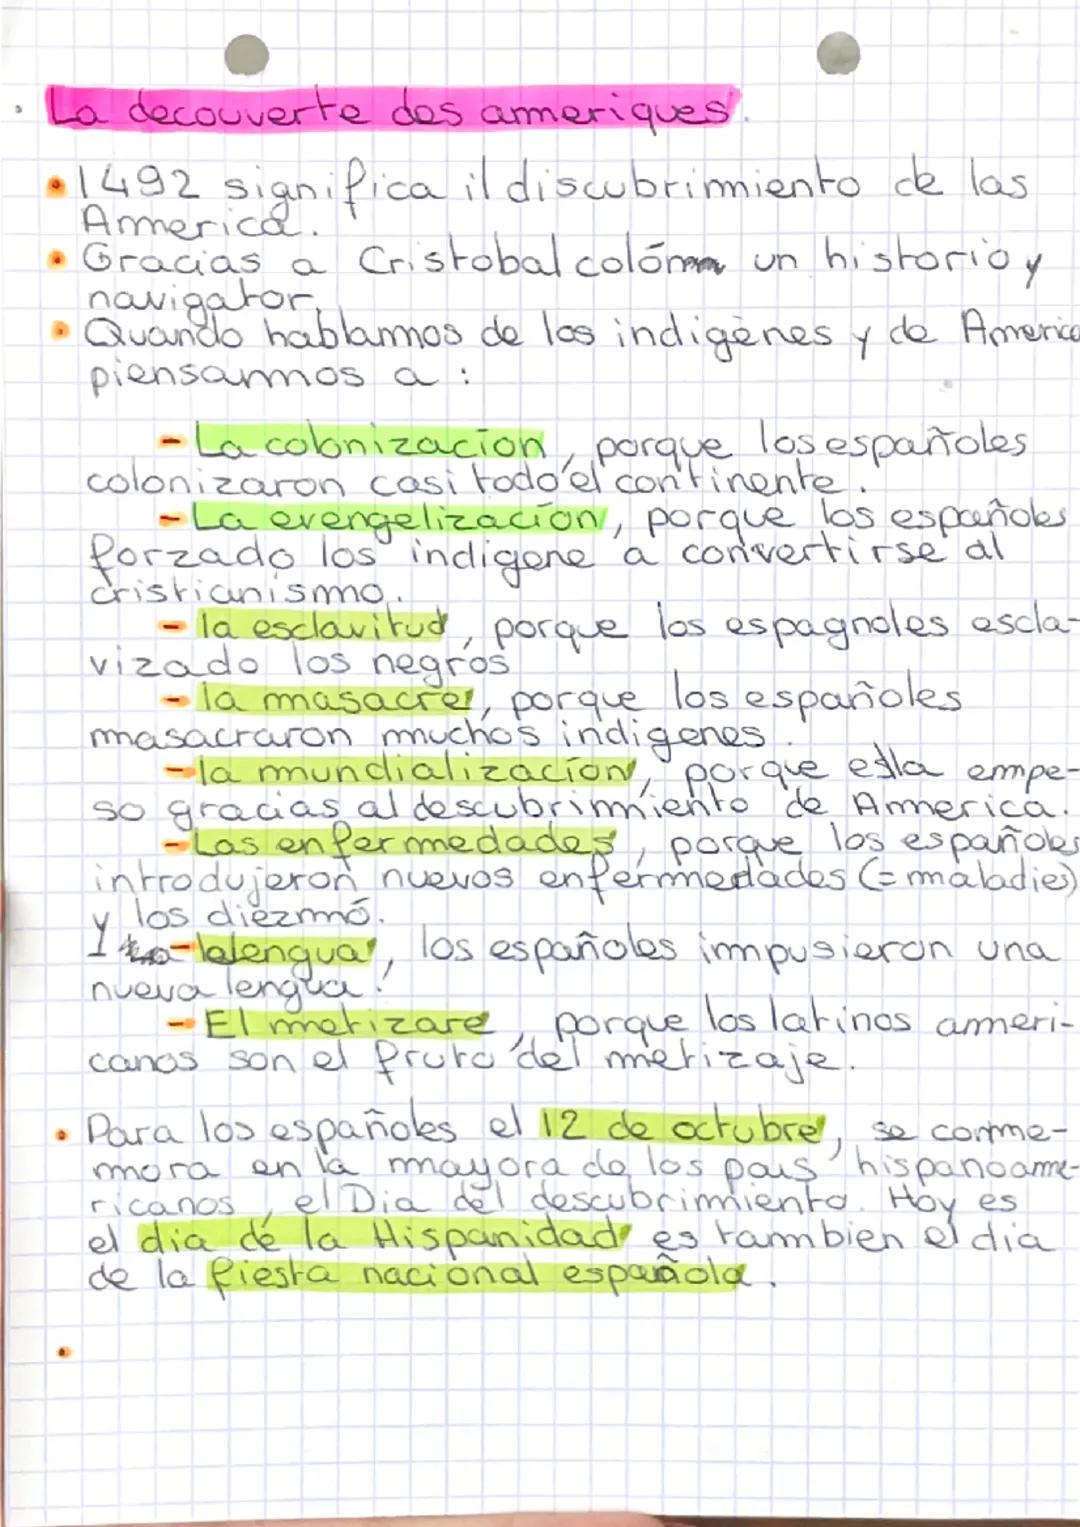 . La decouverte des ameriques.
• 1492 significa il discubrimiento de las
America.
• Gracias a Cristobal colóm un historio y
navigator.
• Quando hablamos de los indigènes y de America
piensamos a :
- La colonizacion, porque los españoles
colonizaron casi todo el continente.
- La evengelizacion, porque los españoles
forzado los indigene a convertirse al
cristianismo.
- la esclavitud, porque los espagnoles escla-
vizado los negros
- la masacre, porque los españoles
masacraron muchos indigenes.
- la mundializacion, porque ella empe-
so gracias al descubrimiento de America.
- Las enfermedades, porque los españoles
introdujeron nuevos enfermedades (= maladies)
y los diezmó.
- la lengua, los españoles impusieron una
nueva lengua.
- El metizare, porque los latinos ameri-
canos son el fruto del metizaje.
• Para los españoles el 12 de octubre, se comme-
mora en la mayora de los pais hispanoame-
ricanos, el Dia del descubrimiento. Hoy es
el dia de la Hispanidad es tambien el dia
de la fiesta nacional española.
•